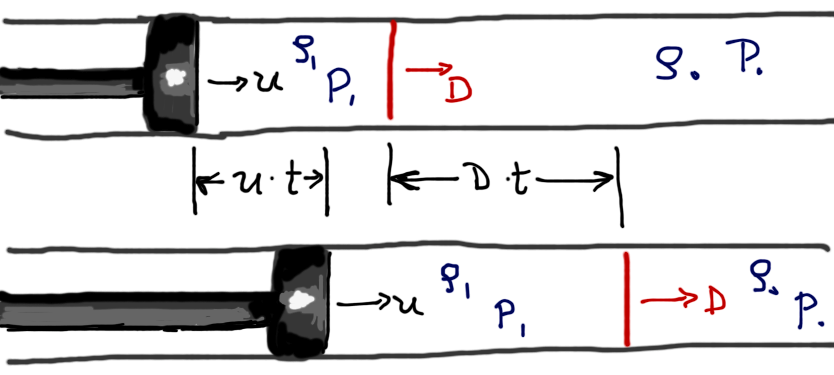 →u ρ₁ P₁ →D ρ. P.
u·t D·t
→u ρ₁ P₁ →D ρ. P.